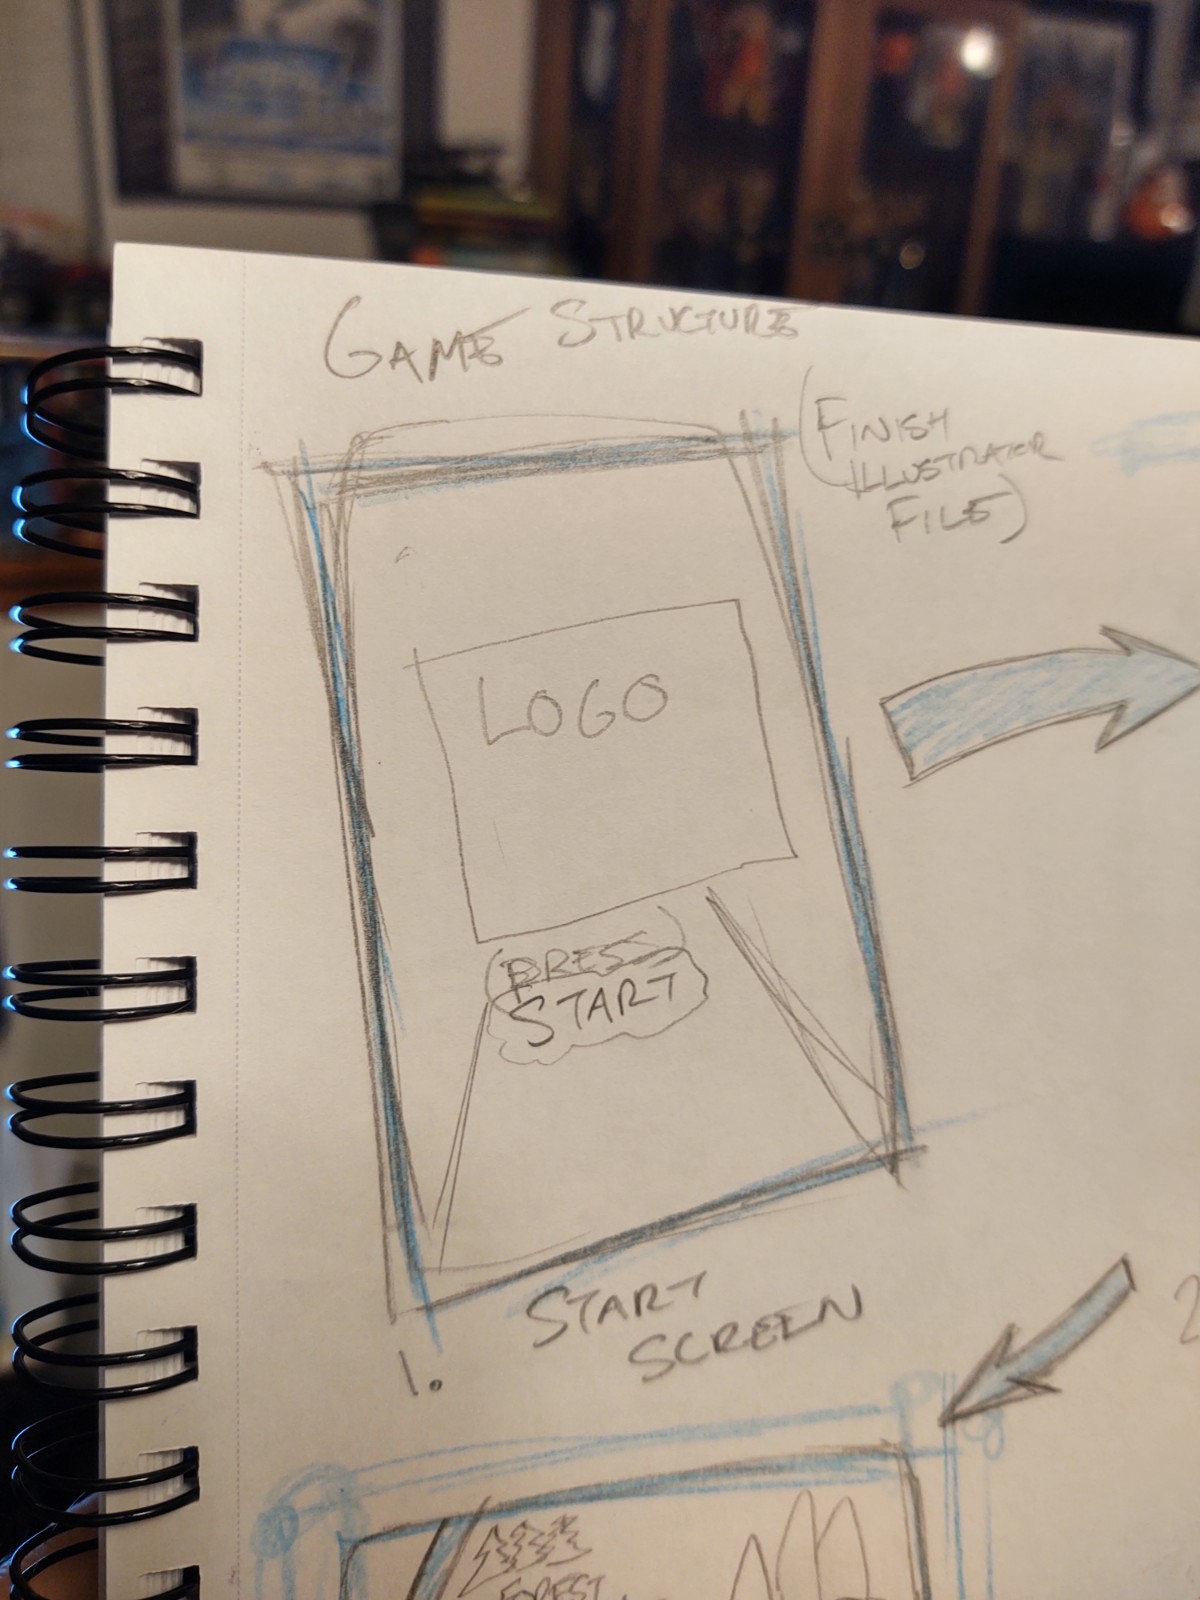 GAME STRUCTURE
(FINISH
ILLUSTRATOR
FILE)
LOGO
PRESS
START
START
SCREEN
1.
2
FOREST